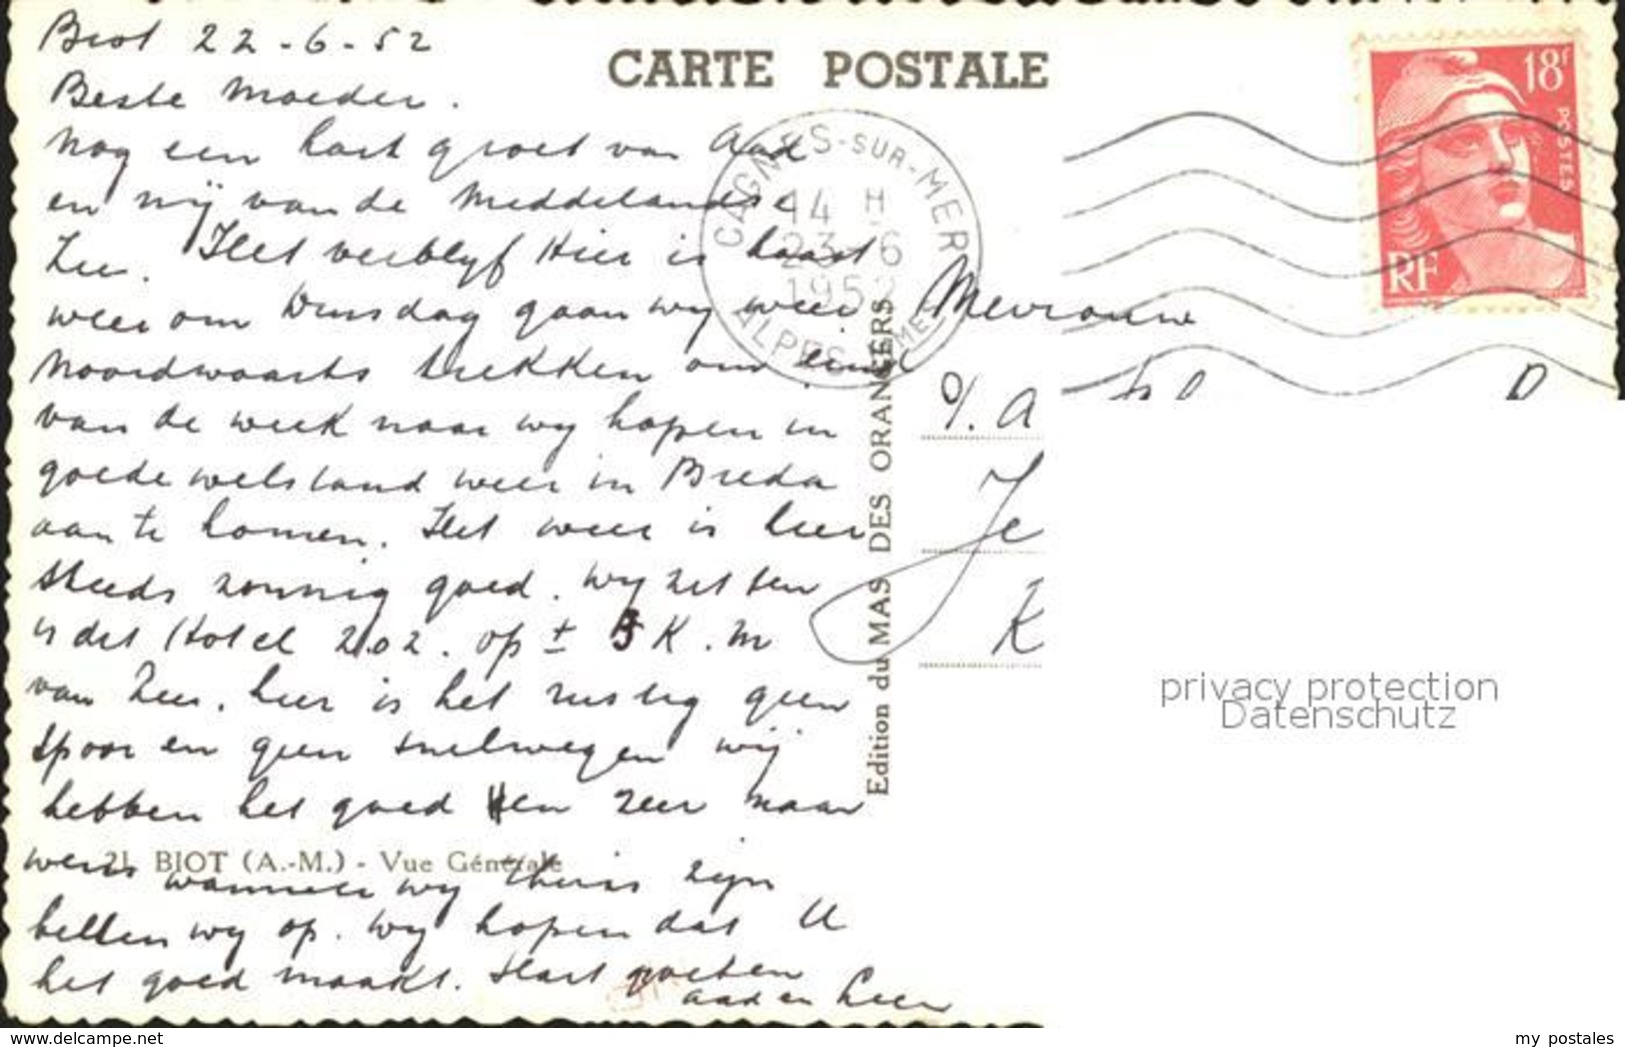 Biot 22-6-52
Beste Moeder.
Nog een hart groet van Aad
en mij van de Middelandse
Zee. Het verblyf Hier is haast
weer om Dinsdag gaan wy weer
Noordwaarts trekken om eind
van de week naar wy hopen in
goede welstand weer in Breda
aan te komen. Het weer is hier
steeds zonnig goed. wy zitten
in dit Hotel 202. op ± 5 K.m
van Zee. hier is het rustig geen
spoor en geen snelwegen wij
hebben het goed en zeer naar
wens wanneer wy thuis zijn
bellen wy op. Wy hopen dat U
het goed maakt. Hart groeten
aad en
21 BIOT (A.-M.) - Vue Générale
CARTE POSTALE
Edition du MAS DES ORANGERS
CAGNES-SUR-MER
14 H
23 6
1952
ALPES MMES
18f
POSTES
RF
Mevrouw
A
Je
K
privacy protection
Datenschutz
www.delcampe.net
my postales